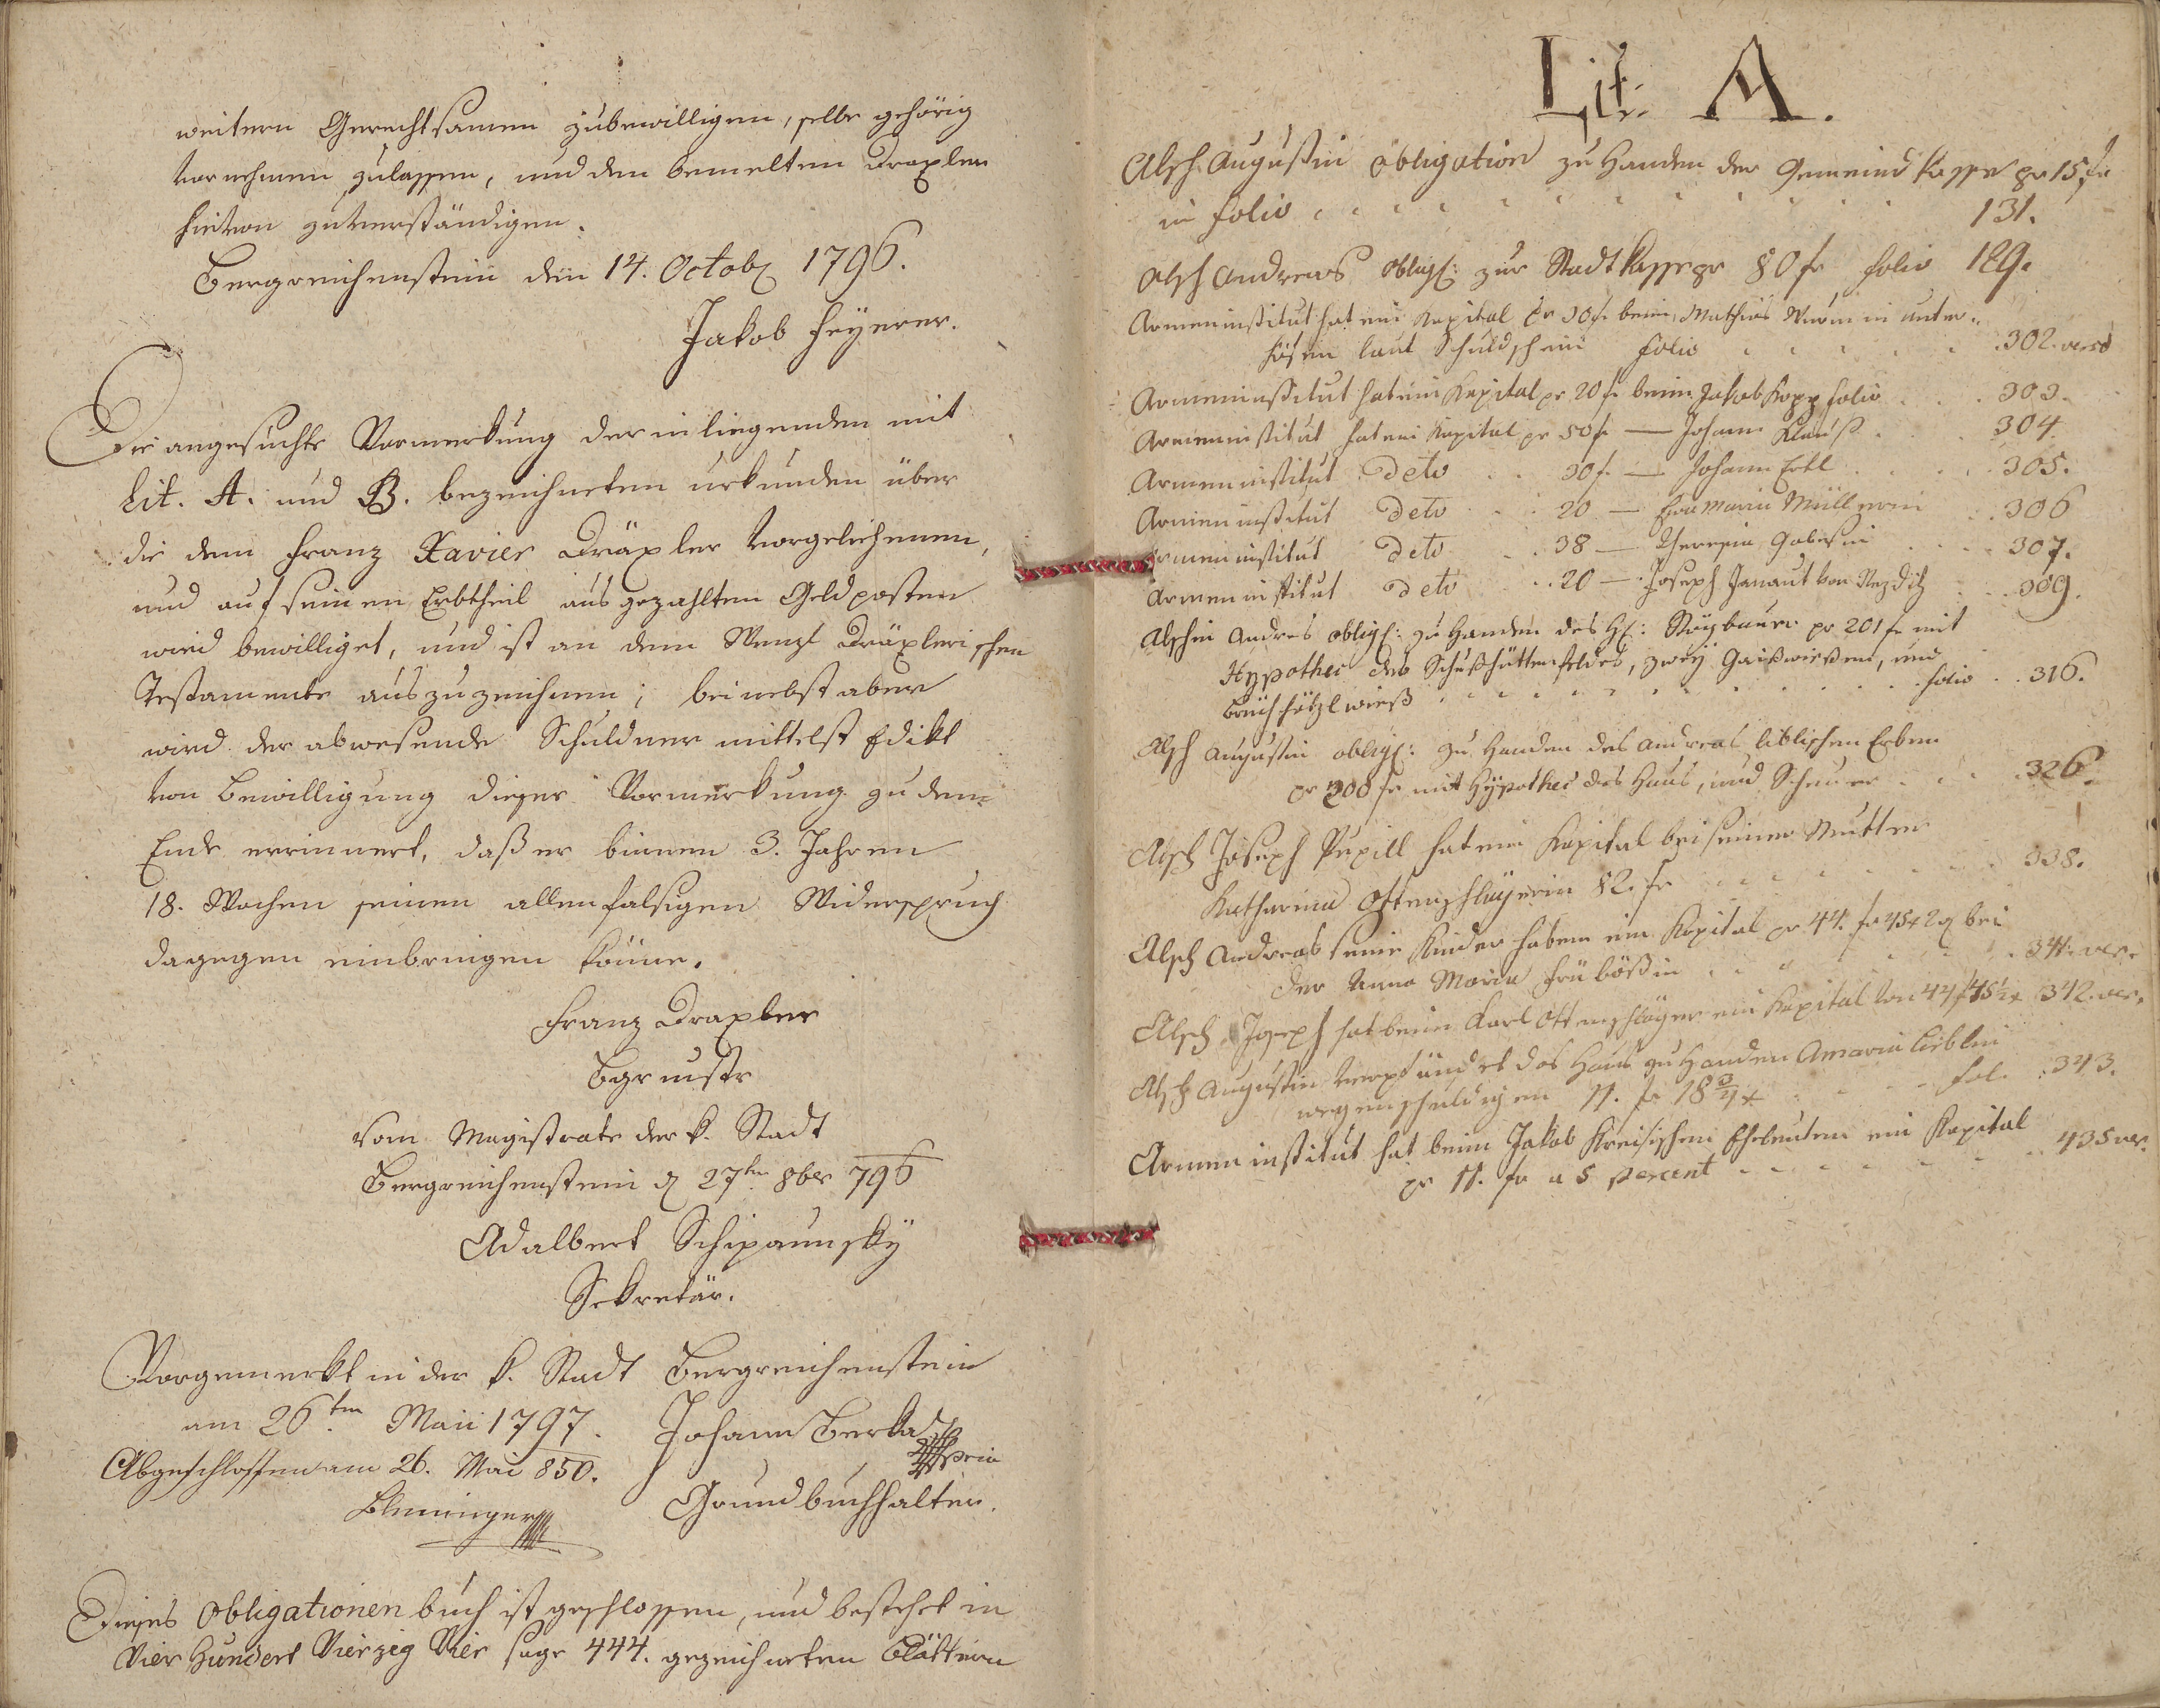 weitern Gerechtsamen zubewilligen, selbe gehörig
vornehmen zulassen, und den bemelten Draxler
hievon zuverständigen.
Bergreichenstein den 14. Octob 1796.
Jakob Feÿerer.
Die angesuchte Vormerkung der inliegenden mit
Lit. A. und B. bezeichneten Urkunden über
die dem Franz Xavier Dräxler vorgeliehenen,
und auf seinen Erbtheil ausgezahlten Geldposten
wird bewilliget, und ist an dem Wenzl Dräxlerischen
Testamente auszuzeichnen; beinebst aber
wird der abwesende Schuldner mittelst Edikt
von Bewilligung dieser Vormerkung zu dem
Ende errinnert, daß er binnen 3. Jahren
18. Wochen seinen allenfalsigen Widerspruch
dagegen einbringen könne.
Franz Draxler
Bgrmstr
Vom Magistrate der k. Stadt
Bergreichenstein d 27ten 8ber 796
Adalbert Schipaunskÿ
Sekretär.
Vorgemerkt in der k. Stadt Bergreichenstein
am 26ten Maii 1797. Johann Berka
Abgeschlossen am 26. Mai 850.
Grundbuchhalter.
Dieses Obligationen buch ist geschlossen, und bestehet in
Vier Hundert Vierzig Vier sage 444. gezeichneten Blättern
Lit: A.
Alsch Augustin obligation zu Handen der Gemeind Kassa pr 15 fr
in folio 131.
Alsch Andreas oblig: zur Stadt Kassa pr 80 fr folio 129.
Armeninstitut hat ein Kapital pr 30 fr beim Mathias Wurm in Unter-
höfen laut Schuldschein folio 302. verso
Armeninstitut hat ein Kapital pr 20 fr beim Jakob Kopp folio 303.
Armeninstitut hat ein Kapital pr 50 fr — Johann Klauß 304.
Armeninstitut Deto 30 f. — Johann Ertl 305.
Armeninstitut Deto 20 — Eva Maria Müllerin 306
Armeninstitut Deto 38 — Theresia Gabisin 307.
Armeninstitut Deto 20 — Joseph Janaut von Nezditz 309.
Alschin Andres oblig: zu Handen des H: Weÿbaurr pr 201 fr mit
Hypothec des Schußhüttenfeldes, zweÿ Gaißwießen, und
wieß folio 316.
Alsch Augustin oblig: zu Handen des Andreas Liblischen Erben
pr 200 fr mit Hÿpothec des Haus, und Scheuer 326.
Alsch Joseph Pupill hat ein Kapital bei seiner Mutter
Katharina Ottenschlagerin 82. fr 338.
Alsch Andreas seine Kinder haben ein Kapital pr 44. fr 45 x 2 d bei
der Anna Maria Frübößin 341. ver.
Alsch Joseph hat beim Karl Ottenschläger ein Kapital von 44 f 45 ½ x 342. ver.
Alsch Augustin verpfändet das Haus zu Handen A Maria Lieblin
wegen schuldigen 11. fr 18 ¾ x fol. 343.
Armeninstitut hat beim Jakob Kreisischen Eheleuten ein Kapital
pr 11. fr a 5 percent 435 ver.